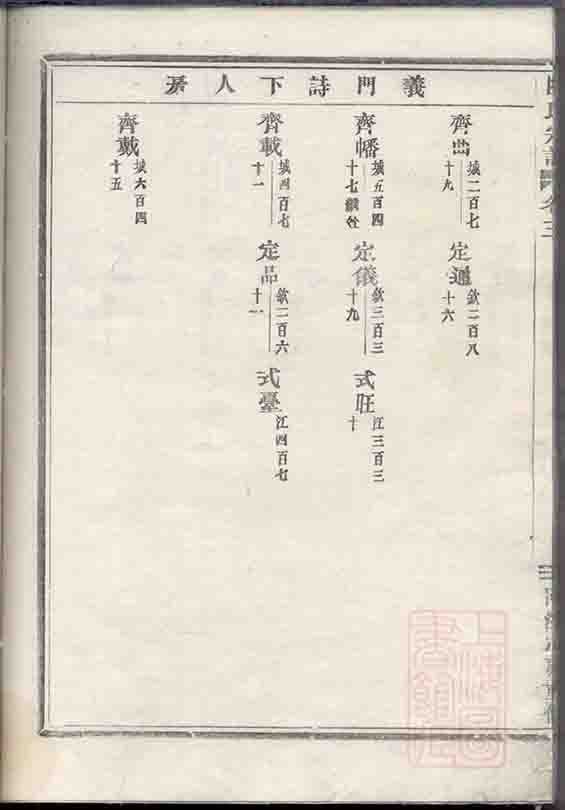 義門詩下人系
齊曲
城二百七
十九
定通
欽二百八
十六
齊幡
城五百四
十七
定儀
欽三百三
十九
式旺
江三百三
十
齊載
城四百七
十一
定品
欽二百六
十一
式臺
江四百七
齊戴
城六百四
十五
上海圖書館藏